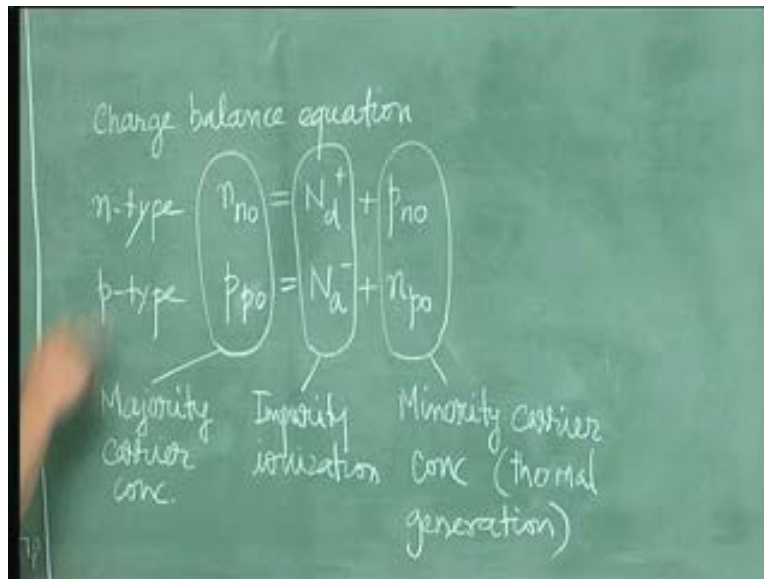 Charge balance equation
n-type n_no = N_d^+ + p_no
p-type p_po = N_a^- + n_po
Majority carrier conc.
Impurity ionization
Minority carrier conc (thermal generation)